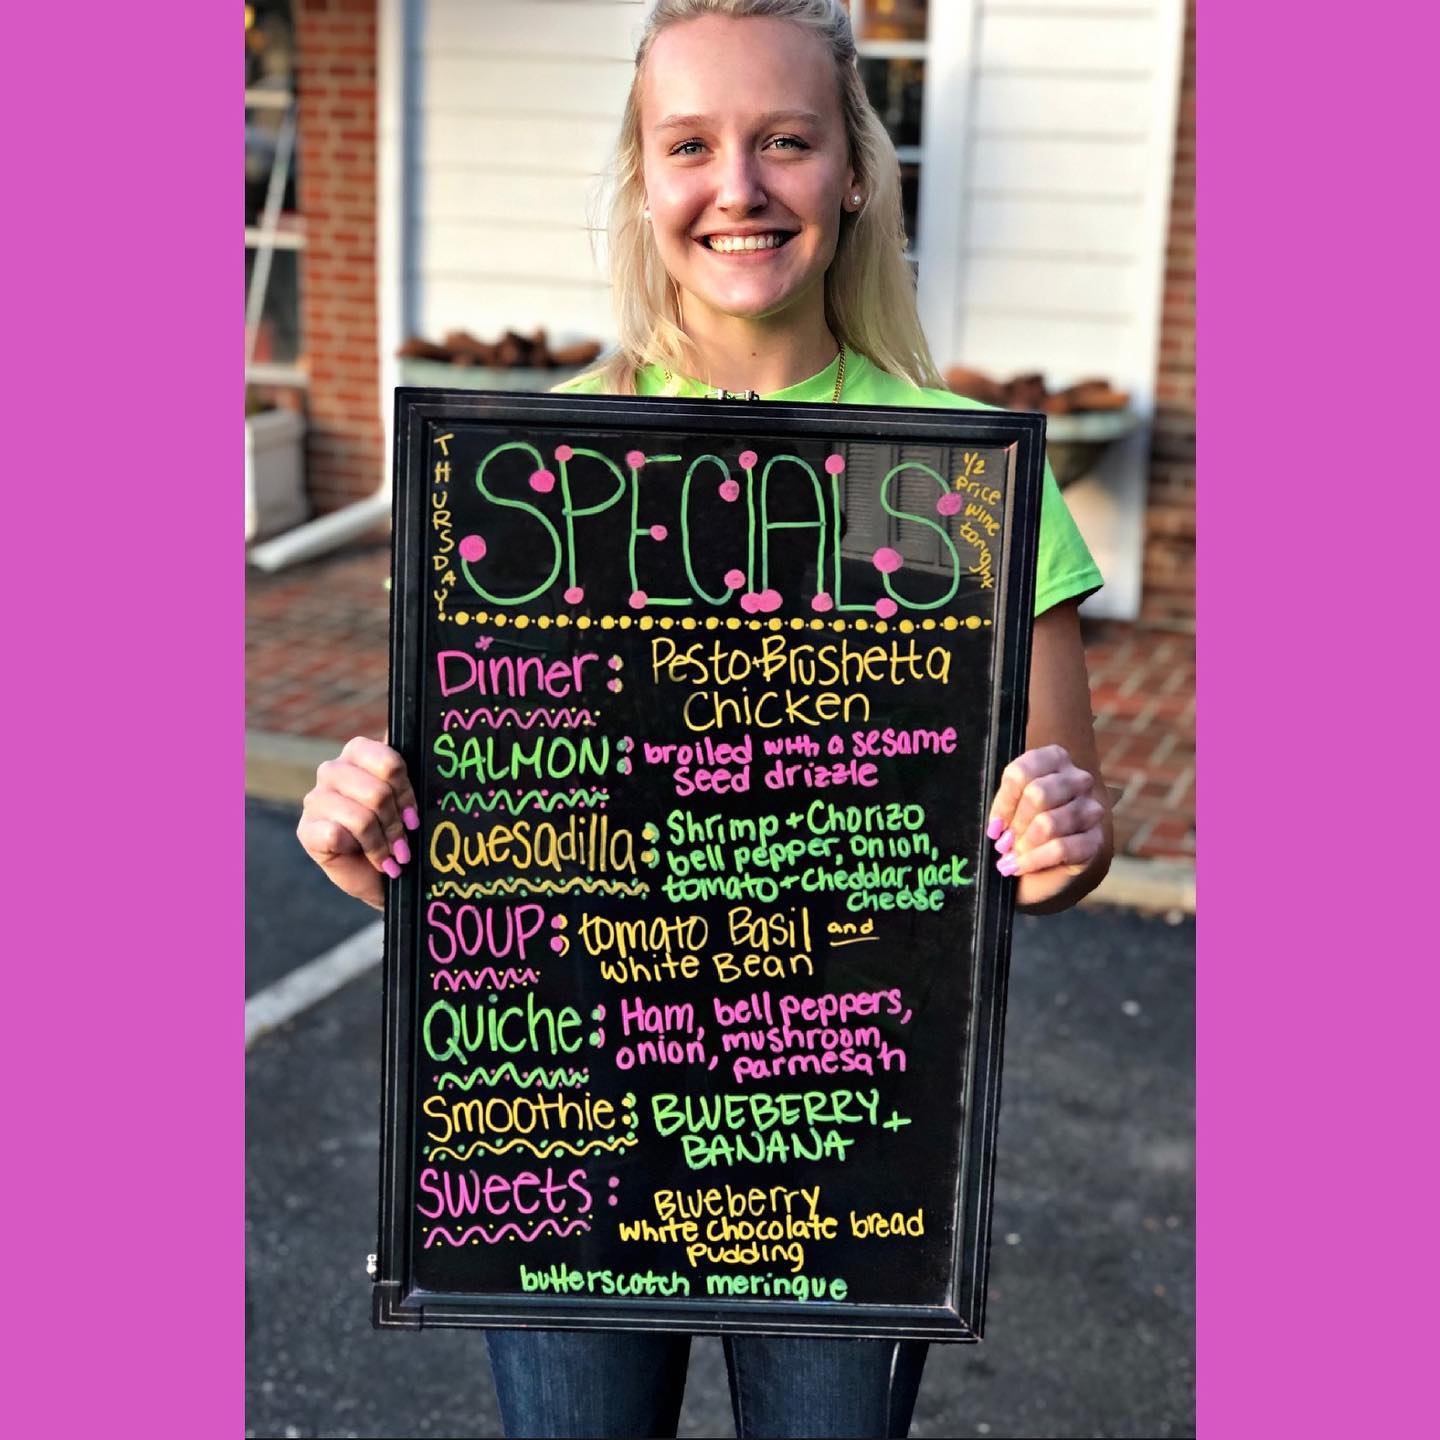 THURSDAY
SPECIALS
1/2
Price
wine
tonight
Dinner: Pesto+Brushetta
Chicken
SALMON: broiled with a sesame
seed drizzle
Quesadilla: Shrimp + Chorizo
bell pepper, onion,
tomato + cheddar jack
cheese
SOUP: tomato Basil and
white Bean
Quiche: Ham, bell peppers,
onion, mushroom,
parmesan
Smoothie: BLUEBERRY +
BANANA
Sweets: Blueberry
white chocolate bread
pudding
butterscotch meringue